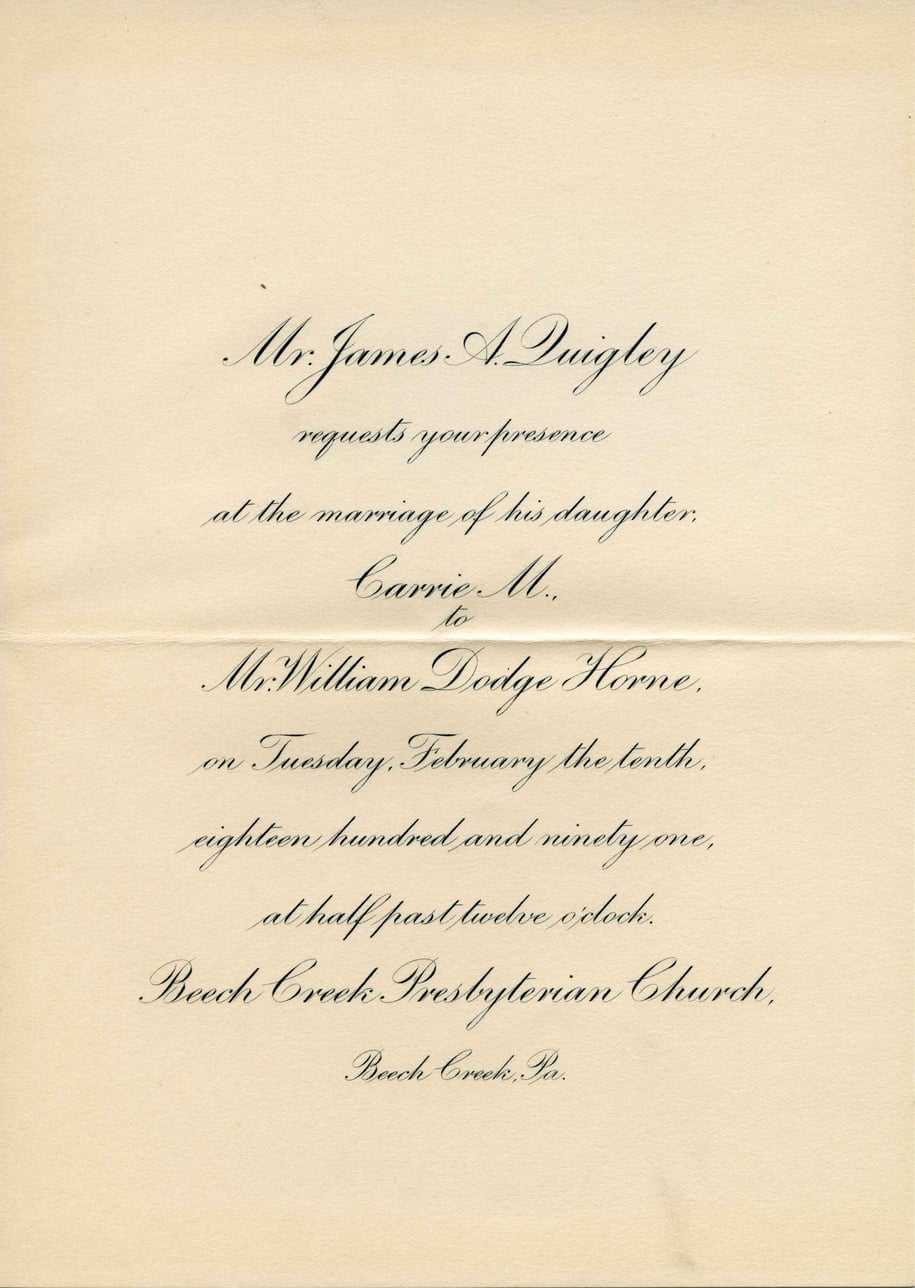 Mr. James A. Quigley
requests your presence
at the marriage of his daughter,
Carrie M.,
to
Mr. William Dodge Horne,
on Tuesday, February the tenth,
eighteen hundred and ninety one,
at half past twelve o'clock.
Beech Creek Presbyterian Church,
Beech Creek, Pa.